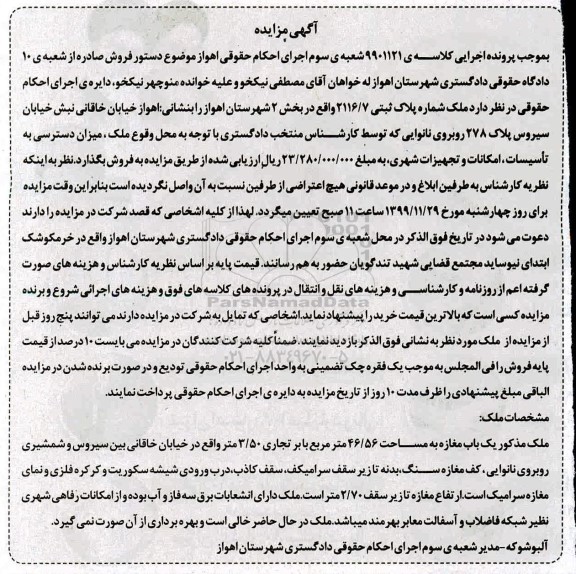 آگهی مزایده
بموجب پرونده اجرایی کلاسه ی ۹۹۰۱۱۲۱ شعبه ی سوم اجرای احکام حقوقی اهواز موضوع دستور فروش صادره از شعبه ی ۱۰
دادگاه حقوقی دادگستری شهرستان اهواز له خواهان آقای مصطفی نیکخو و علیه خوانده منوچهر نیکخو، دایره ی اجرای احکام
حقوقی در نظر دارد ملک شماره پلاک ثبتی ۲۱۱۶/۷ واقع در بخش ۲ شهرستان اهواز را بنشانی:اهواز خیابان خاقانی نبش خیابان
سیروس پلاک ۲۷۸ روبروی نانوایی که توسط کارشناس منتخب دادگستری با توجه به محل وقوع ملک ، میزان دسترسی به
تأسیسات ، امکانات و تجهیزات شهری، به مبلغ ۲۳/۲۸۰/۰۰۰/۰۰۰ ریال ارزیابی شده از طریق مزایده به فروش بگذارد.نظر به اینکه
نظریه کارشناس به طرفین ابلاغ و در موعد قانونی هیچ اعتراضی از طرفین نسبت به آن واصل نگردیده است بنابراین وقت مزایده
برای روز چهارشنبه مورخ ۱۳۹۹/۱۱/۲۹ ساعت ۱۱ صبح تعیین میگردد. لهذا از کلیه اشخاصی که قصد شرکت در مزایده را دارند
دعوت می شود در تاریخ فوق الذکر در محل شعبه ی سوم اجرای احکام حقوقی دادگستری شهرستان اهواز واقع در خرمکوشک
ابتدای نیوساید مجتمع قضایی شهید تندگویان حضور به هم رسانند. قیمت پایه بر اساس نظریه کارشناس و هزینه های صورت
گرفته اعم از روزنامه و کارشناسی و هزینه های نقل و انتقال در پرونده های کلاسه های فوق و هزینه های اجرائی شروع و برنده
مزایده کسی است که بالاترین قیمت خرید را پیشنهاد نماید.اشخاصی که تمایل به شرکت در مزایده دارند می توانند پنج روز قبل
از مزایده از ملک مورد نظر به نشانی فوق الذکر بازدید نمایند. ضمناً کلیه شرکت کنندگان در مزایده می بایست ۱۰ درصد از قیمت
پایه فروش را فی المجلس به موجب یک فقره چک تضمینی به واحد اجرای احکام حقوقی تودیع و در صورت برنده شدن در مزایده
الباقی مبلغ پیشنهادی را ظرف مدت ۱۰ روز از تاریخ مزایده به دایره ی اجرای احکام حقوقی پرداخت نمایند.
مشخصات ملک:
ملک مذکور یک باب مغازه به مساحت ۴۶/۵۶ متر مربع با بر تجاری ۳/۵۰ متر واقع در خیابان خاقانی بین سیروس و شمشیری
روبروی نانوایی ، کف مغازه سنگ، بدنه تا زیر سقف سرامیکف، سقف کاذب، درب ورودی شیشه سکوریت و کرکره فلزی و نمای
مغازه سرامیک است.ارتفاع مغازه تا زیر سقف ۲/۷۰ متر است.ملک دارای انشعابات برق سه فاز و آب بوده و از امکانات رفاهی شهری
نظیر شبکه فاضلاب و آسفالت معابر بهرمند میباشد.ملک در حال حاضر خالی است و بهره برداری از آن صورت نمی گیرد.
آلبوشوکه -مدیر شعبه ی سوم اجرای احکام حقوقی دادگستری شهرستان اهواز
ParsNamadData
۰۲۱-۸۸۳۴۹۶۷۰-۵